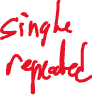 single
repeated